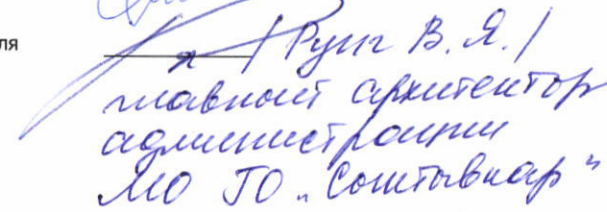 ля / Рунг В. Я. /
главный архитектор
администрации
МО ГО „Сыктывкар"